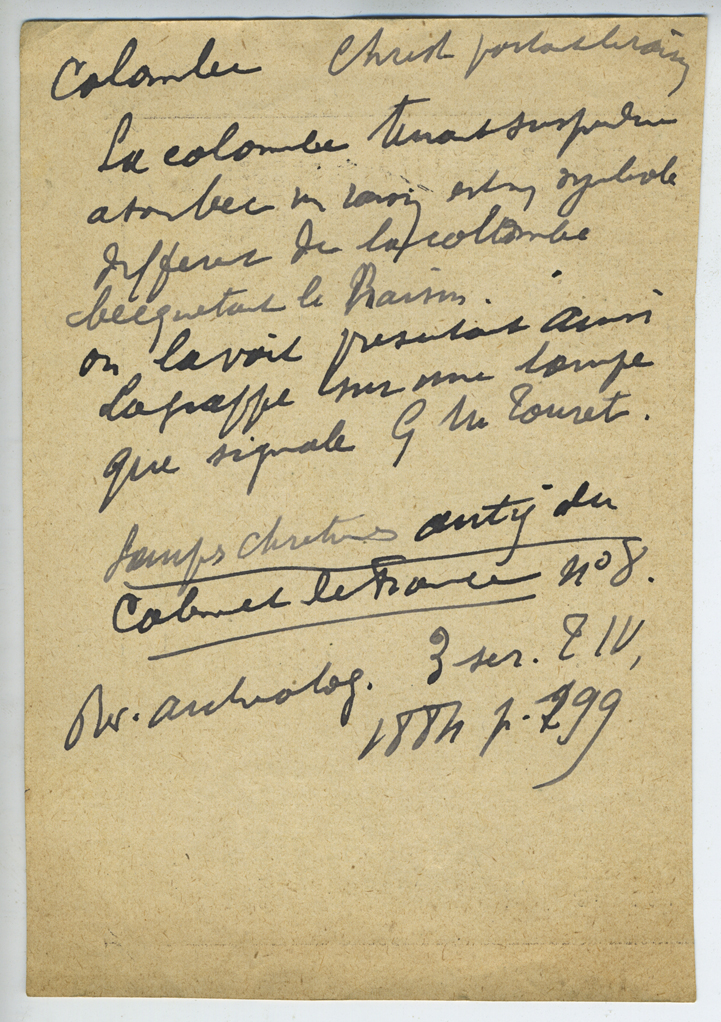 Colombe Christ portant le raisin
La colombe tenant suspendu
a son bec un raisin est un symbole
different de la collombe
becquetant le Raisin.
on la voit presentant ainsi
la grappe sur une lampe
que signale G M Touret.
Lampes chretiennes antiq du
Cabinet de France n° 8.
Rev. archeolog. 3 ser. T IV,
1884 p. 299